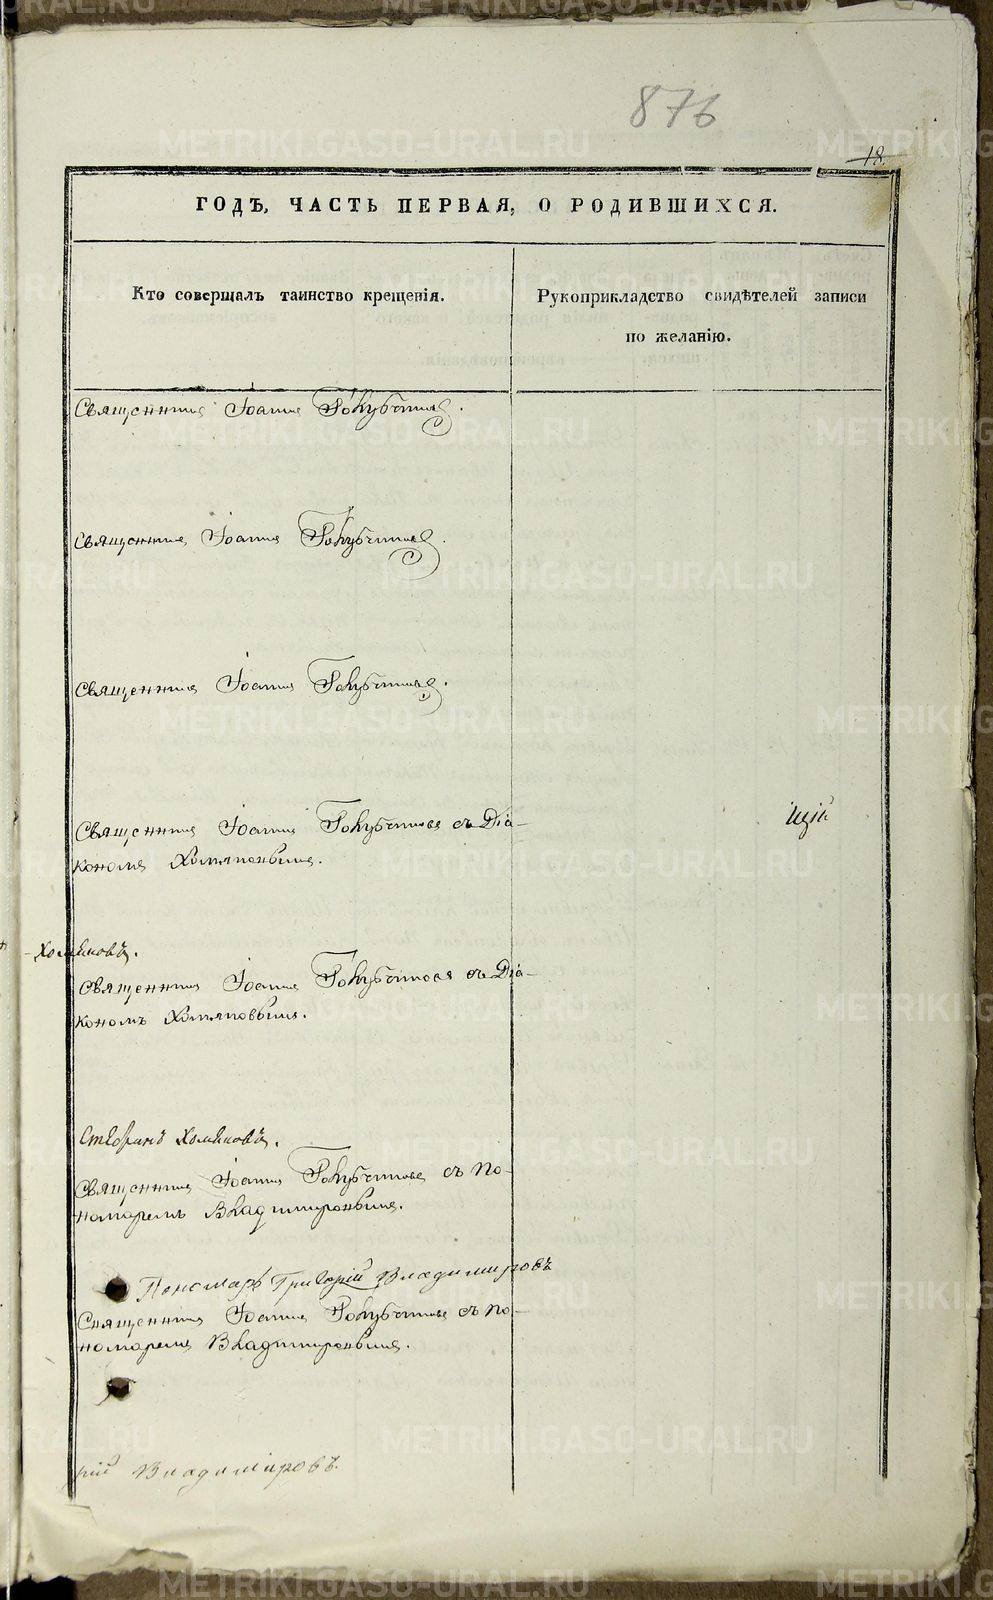 876
18.
ГОДѢ, ЧАСТЬ ПЕРВАЯ, О РОДИВШИХСЯ.
Кто совершалъ таинство крещенія.
Рукоприкладство свидѣтелей записи
по желанію.
Священникъ Іоаннъ Голубчиковъ.
Священникъ Іоаннъ Голубчиковъ.
Священникъ Іоаннъ Голубчиковъ.
Священникъ Іоаннъ Голубчиковъ съ Діа-
кономъ Хомяковымъ.
щій
Хомяковъ.
Священникъ Іоаннъ Голубчиковъ съ Діа-
кономъ Хомяковымъ.
Стефанъ Хомяковъ.
Священникъ Іоаннъ Голубчиковъ съ По-
номаремъ Владимировымъ.
Пономарь Григорій Владимировъ
Священникъ Іоаннъ Голубчиковъ съ По-
номаремъ Владимировымъ.
рій Владиміровъ.
METRIKI.GASO-URAL.RU